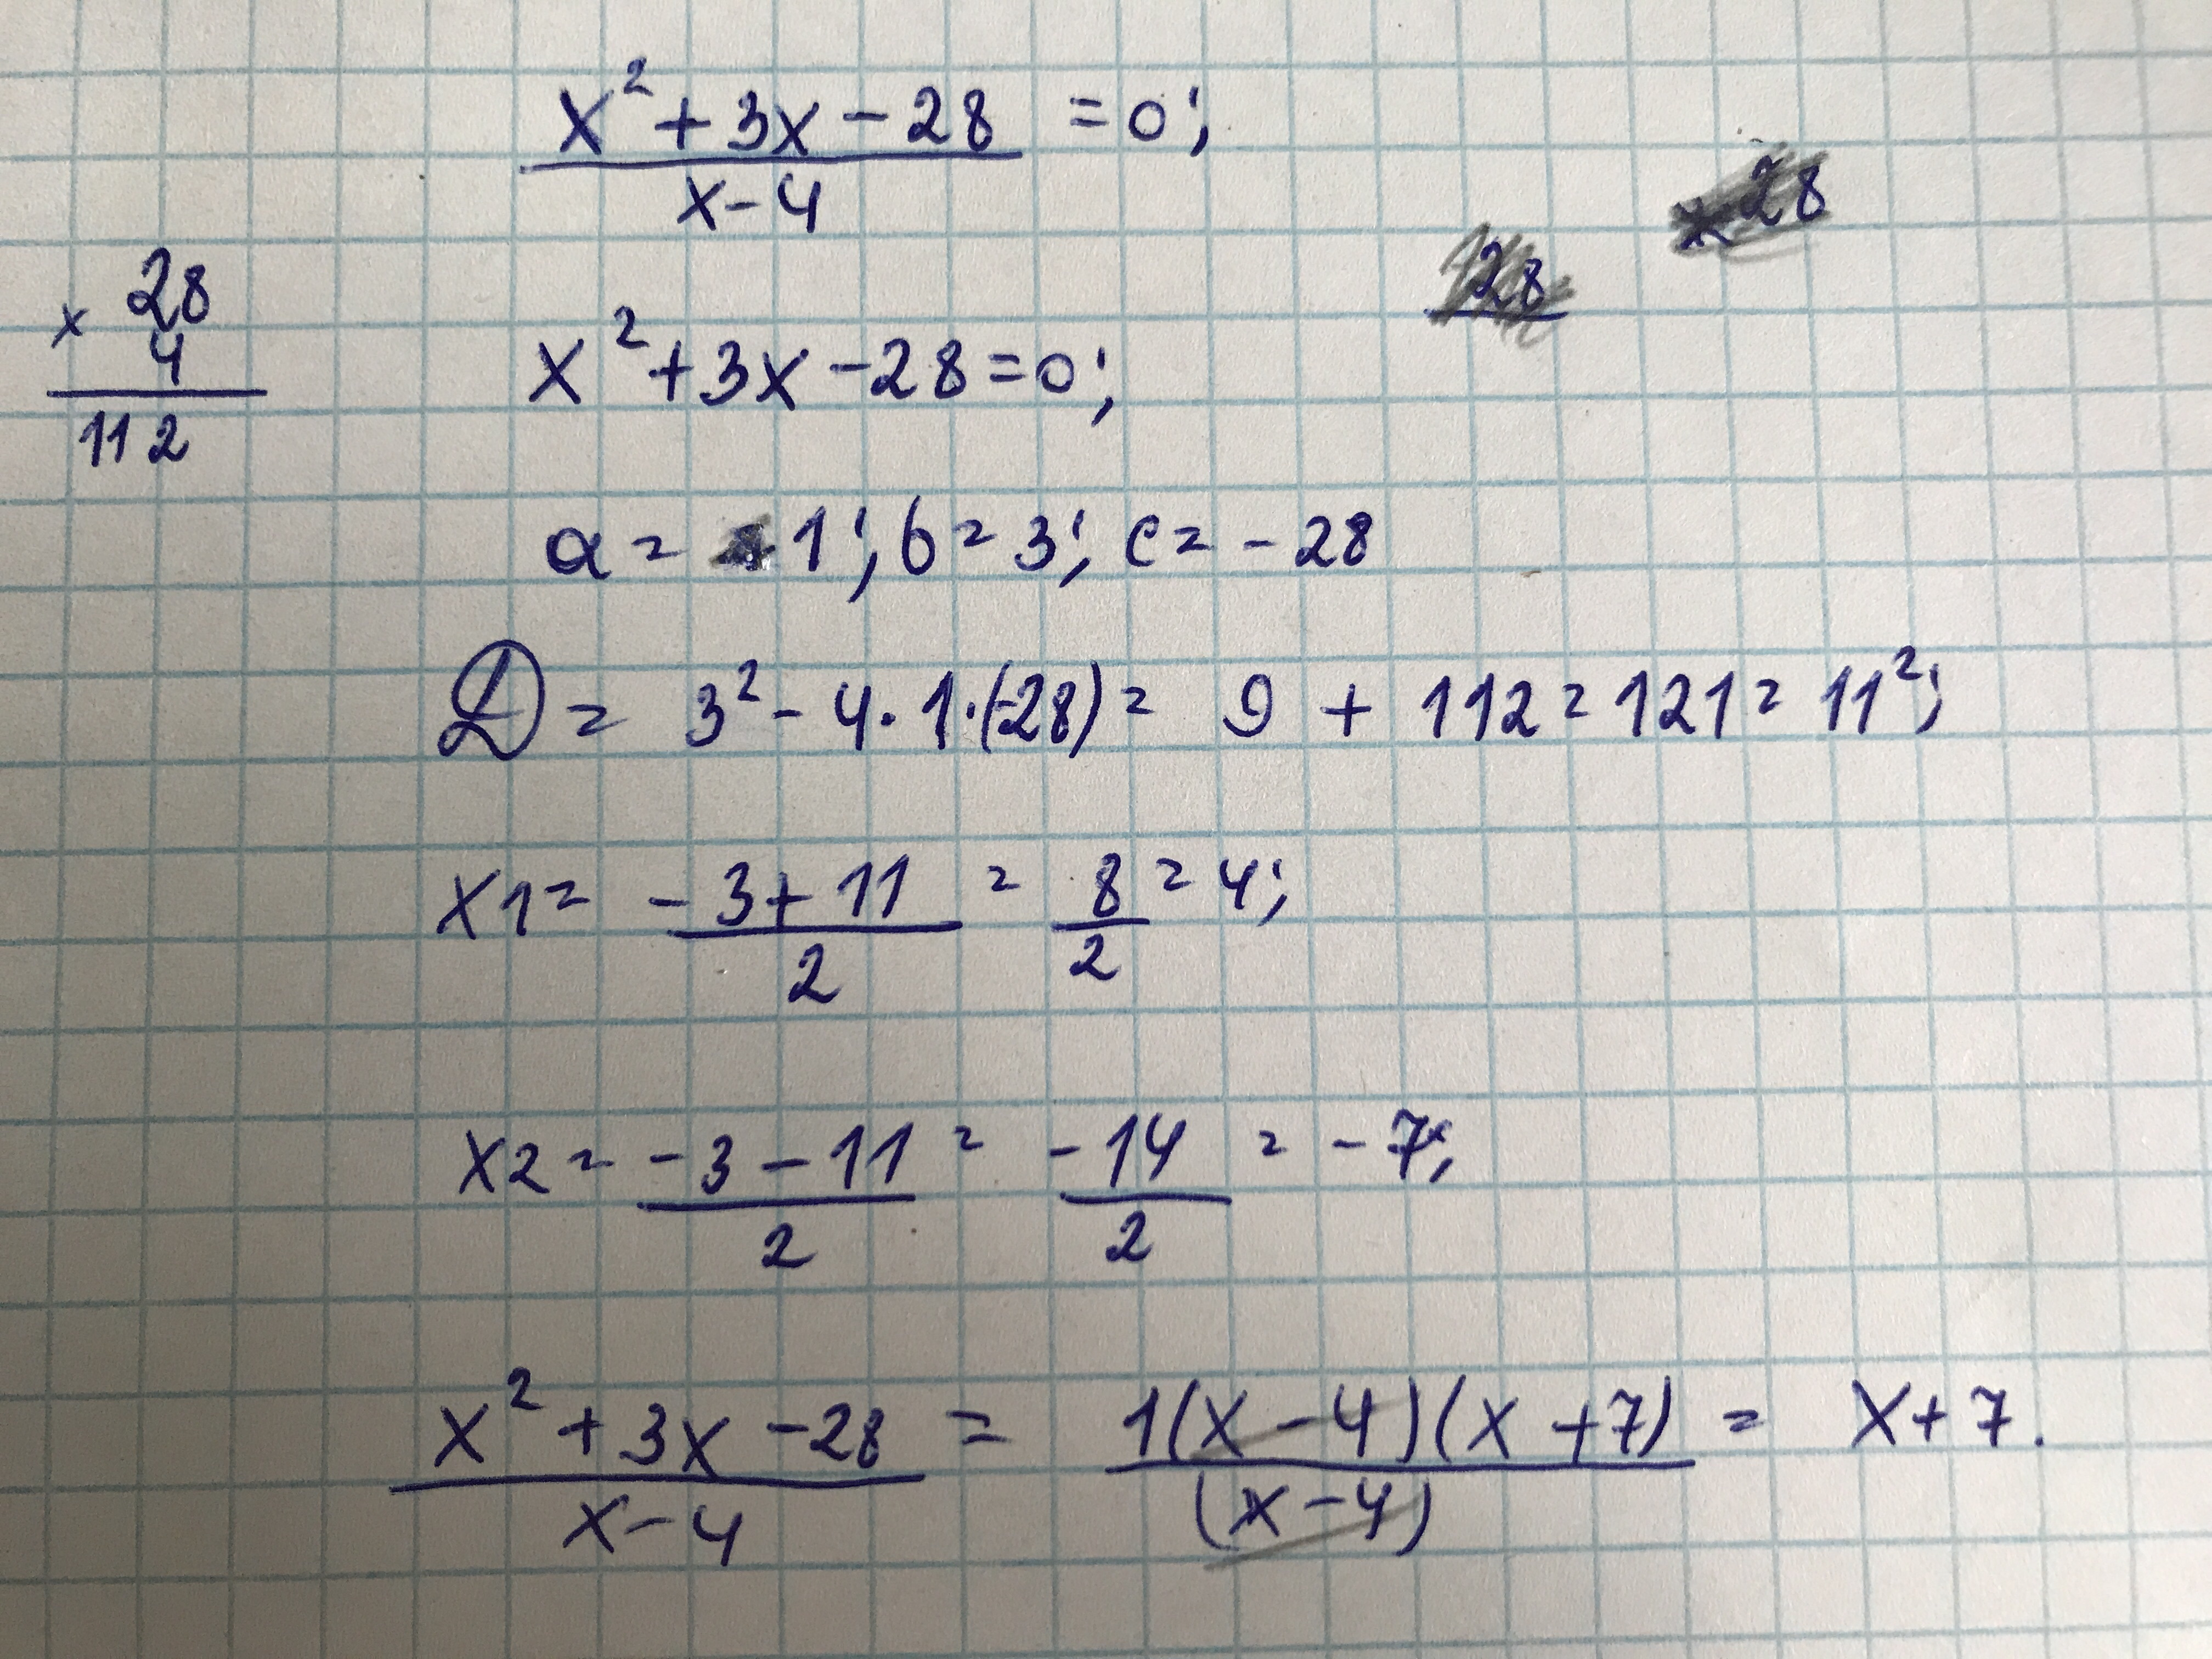 x² + 3x - 28 = 0;
x - 4
28
28
× 28
4
112
x² + 3x - 28 = 0;
a = 1; b = 3; c = -28
D = 3² - 4 · 1 · (-28) = 9 + 112 = 121 = 11²;
x1 = -3 + 11 = 8 = 4;
2 2
x2 = -3 - 11 = -14 = -7;
2 2
x² + 3x - 28 = 1(x - 4)(x + 7) = x + 7.
x - 4 (x - 4)